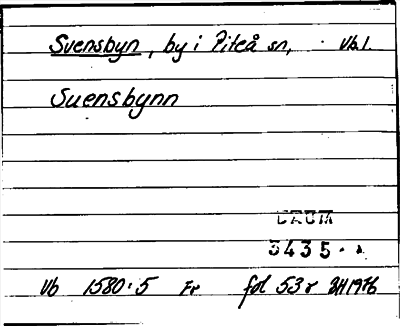 Svensbyn, by i Piteå sn, Vb.l.
Suensbynn
DAUM
3435
Vb 1580:5 Fr fol 53 r BH1976